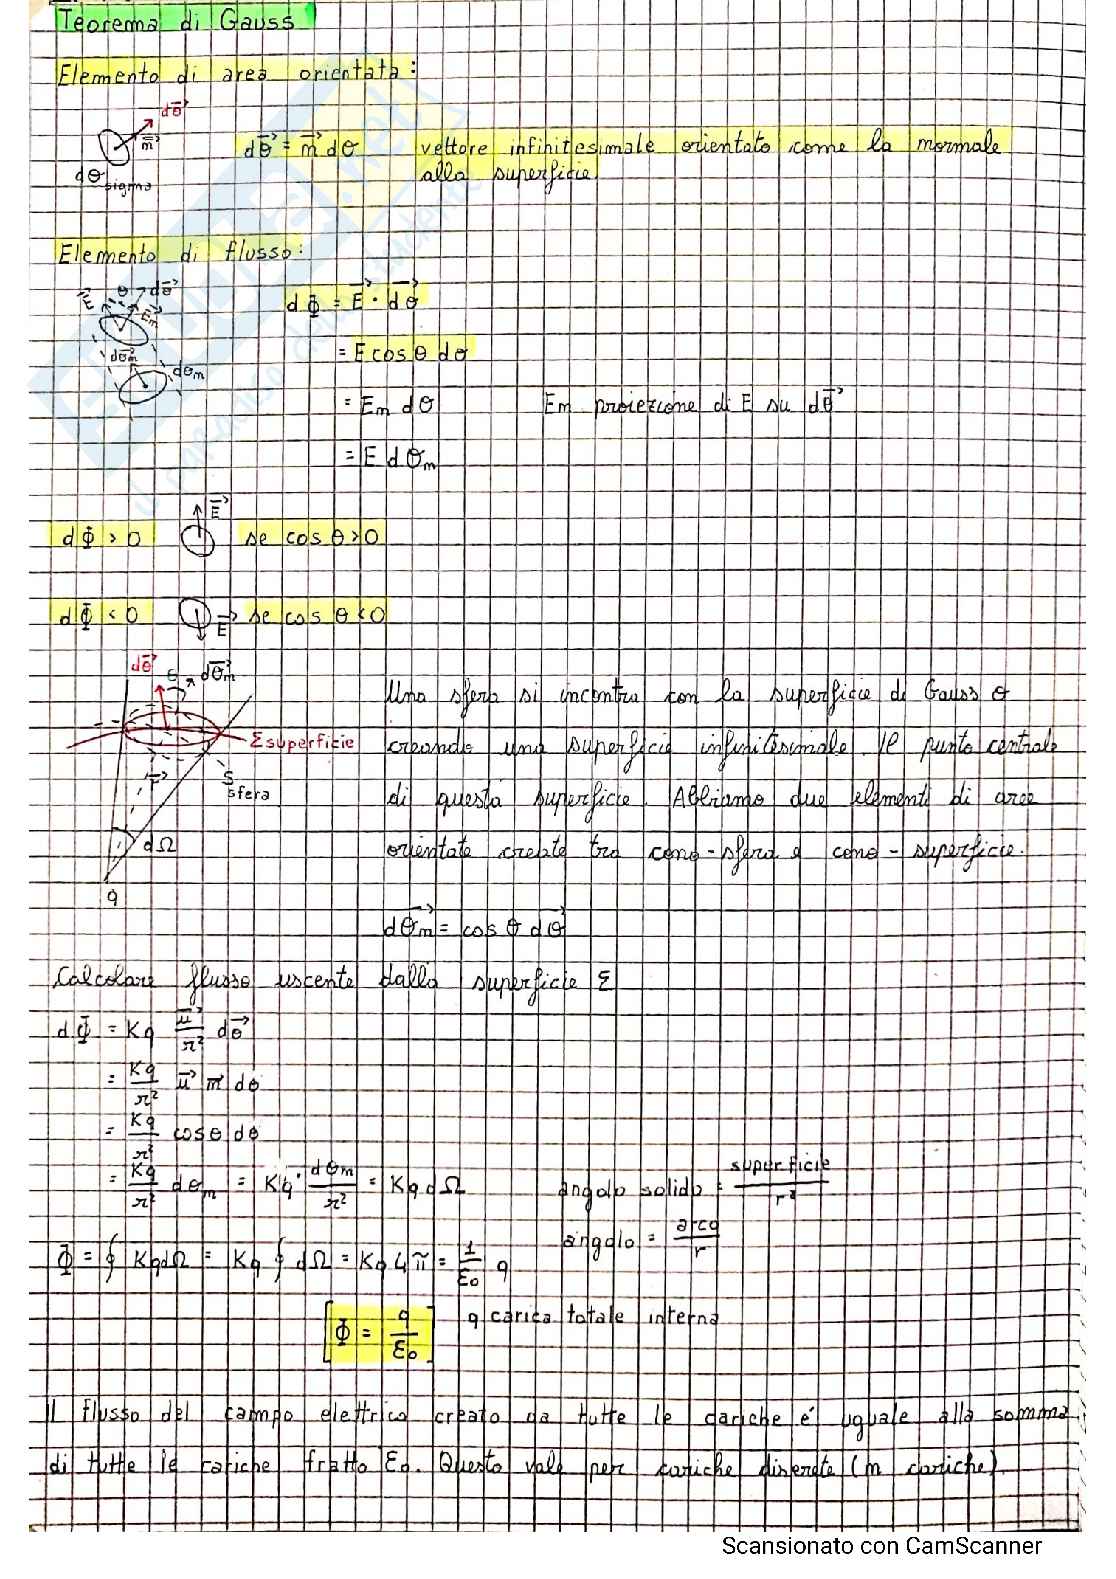 Teorema di Gauss
Elemento di area orientata:
dσ⃗
n⃗
dσ sigma
dσ⃗ = n⃗ dσ vettore infinitesimale orientato come la normale
alla superficie
Elemento di flusso:
E⃗ θ dσ⃗
E⃗n
dσ⃗n
dσn
dΦ = E⃗ · dσ⃗
= E cos θ dσ
= En dσ En proiezione di E su dσ⃗
= E dσn
dΦ > 0 E⃗ se cos θ > 0
dΦ < 0 E⃗ se cos θ < 0
dσ⃗ θ dσ⃗n
Σ superficie
r⃗ S sfera
dΩ
q
Una sfera si incontra con la superficie di Gauss σ
creando una superficie infinitesimale. Il punto centrale
di questa superficie. Abbiamo due elementi di aree
orientate create tra cono-sfera e cono-superficie.
dσ⃗n = cos θ dσ⃗
Calcolare flusso uscente dalla superficie Σ
dΦ = Kq u⃗/r² dσ⃗
= Kq/r² u⃗ n⃗ dσ
= Kq/r² cosθ dσ
= Kq/r² dσn = Kq · dσn/r² = Kq dΩ angolo solido = superficie/r²
angolo = arco/r
Φ = ∮ Kq dΩ = Kq ∮ dΩ = Kq 4π = 1/ε₀ q
[Φ = q/ε₀] q carica totale interna
Il flusso del campo elettrico creato da tutte le cariche é uguale alla somma
di tutte le cariche fratto ε₀. Questo vale per cariche discrete (n cariche)
Scansionato con CamScanner